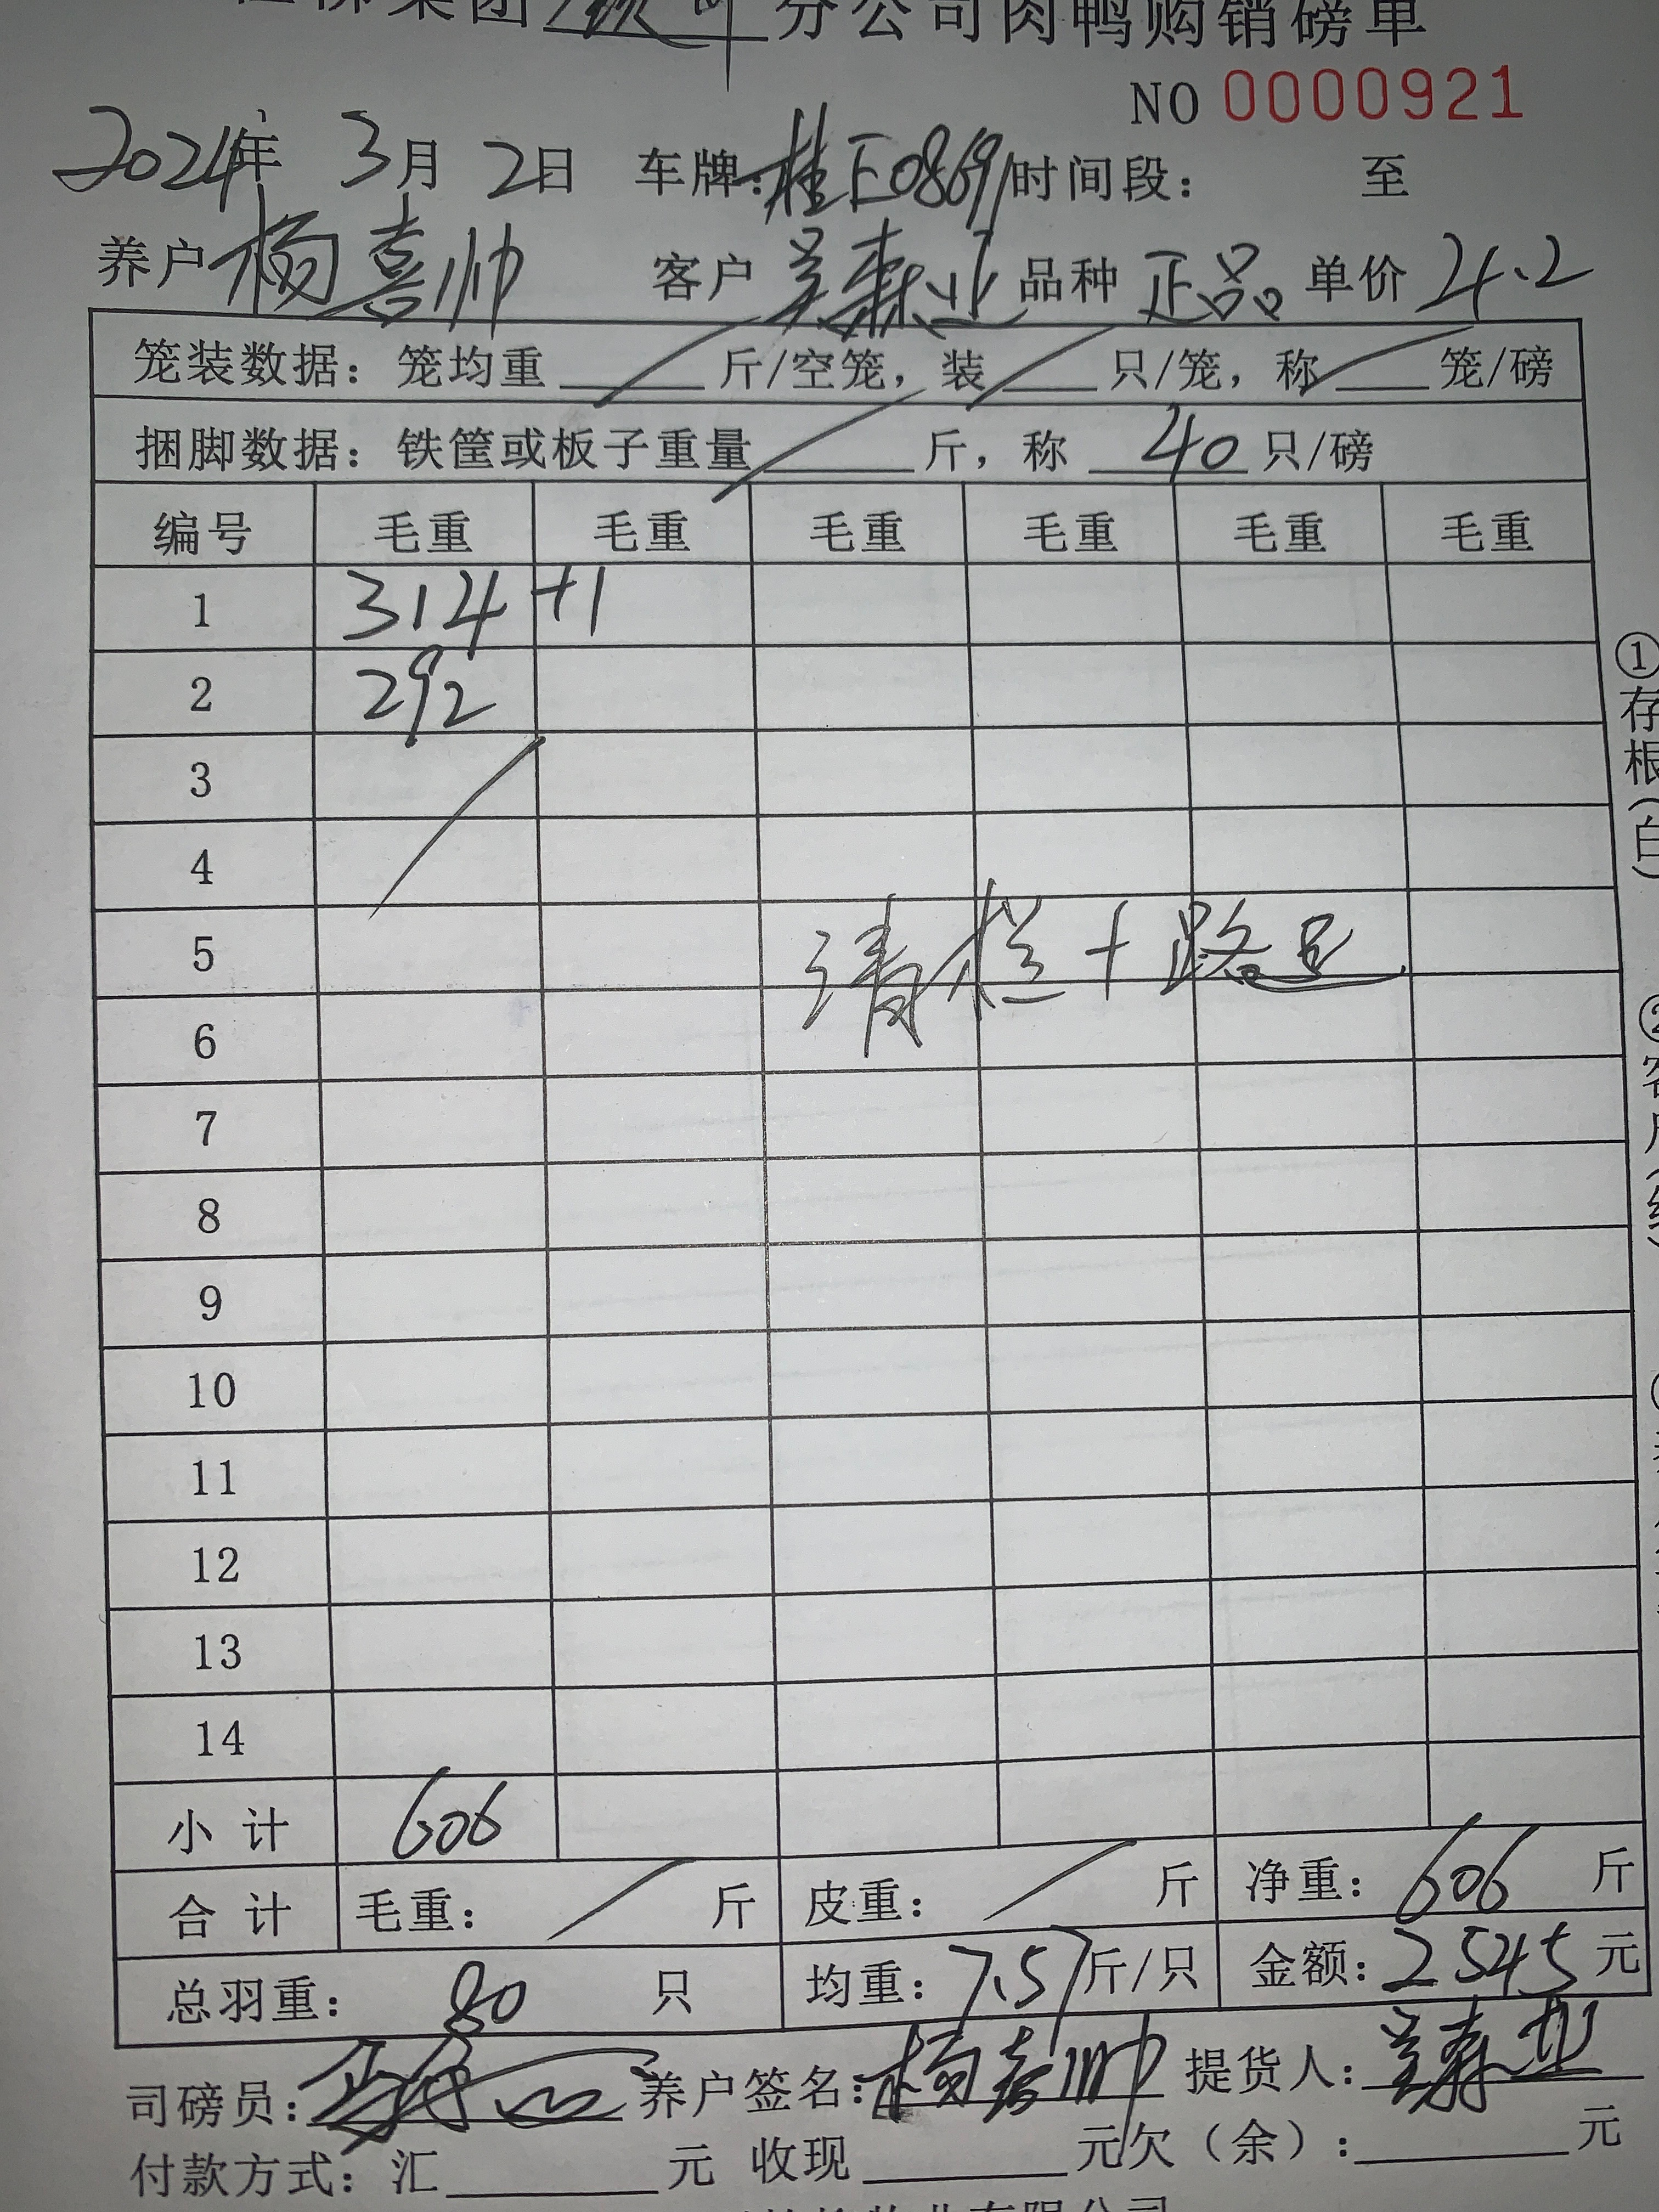 集团 分公司肉鸭购销磅单
NO 0000921
2024年 3月 2日 车牌：桂E0869 时间段： 至
养户 杨喜帅 客户 吴森业 品种 正品 单价 4.2
笼装数据：笼均重 斤/空笼，装 只/笼，称 笼/磅
捆脚数据：铁筐或板子重量 斤，称 40 只/磅
编号 毛重 毛重 毛重 毛重 毛重 毛重
1 314 +1
2 292
3
4
5 清栏+路远
6
7
8
9
10
11
12
13
14
小计 606
合计 毛重： 斤 皮重： 斤 净重：606 斤
总羽重：80 只 均重：7.57斤/只 金额：2545元
司磅员： 养户签名：杨喜帅 提货人：吴森业
付款方式：汇 元 收现 元 欠（余）： 元
①存根（白）
②客户